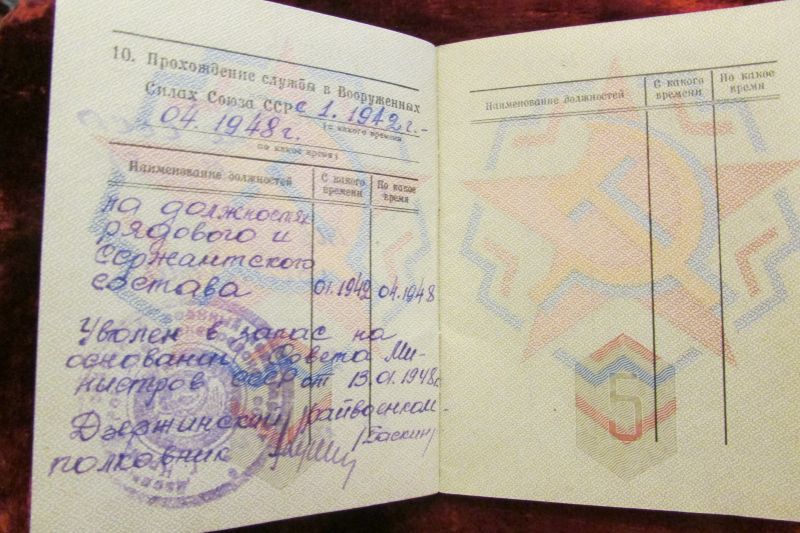 10. Прохождение службы в Вооруженных
Силах Союза ССР с 1. 1942 г. -
(с какого времени
04. 1948 г.
по какое время)
Наименование должностей С какого времени По какое время
на должностях
рядового и
сержантского
состава 01.1942 04.1948
Уволен в запас на
основании Совета Ми-
нистров СССР от 13.01.1948г.
Дзержинский райвоенком-
полковник /Баскин/
Наименование должностей С какого времени По какое время
5